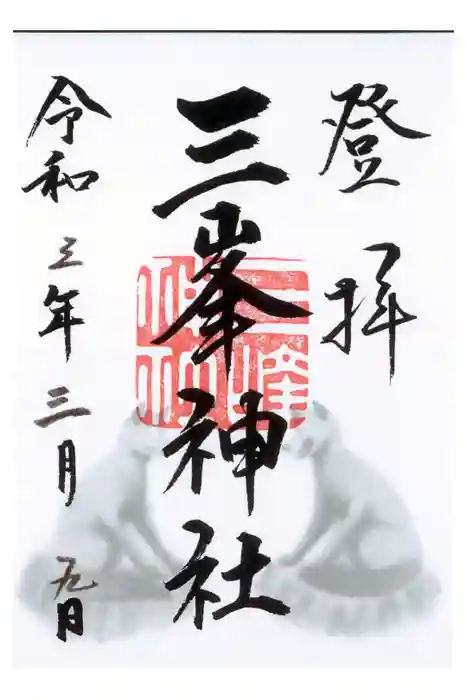 登拝
三峯神社
令和三年三月九日